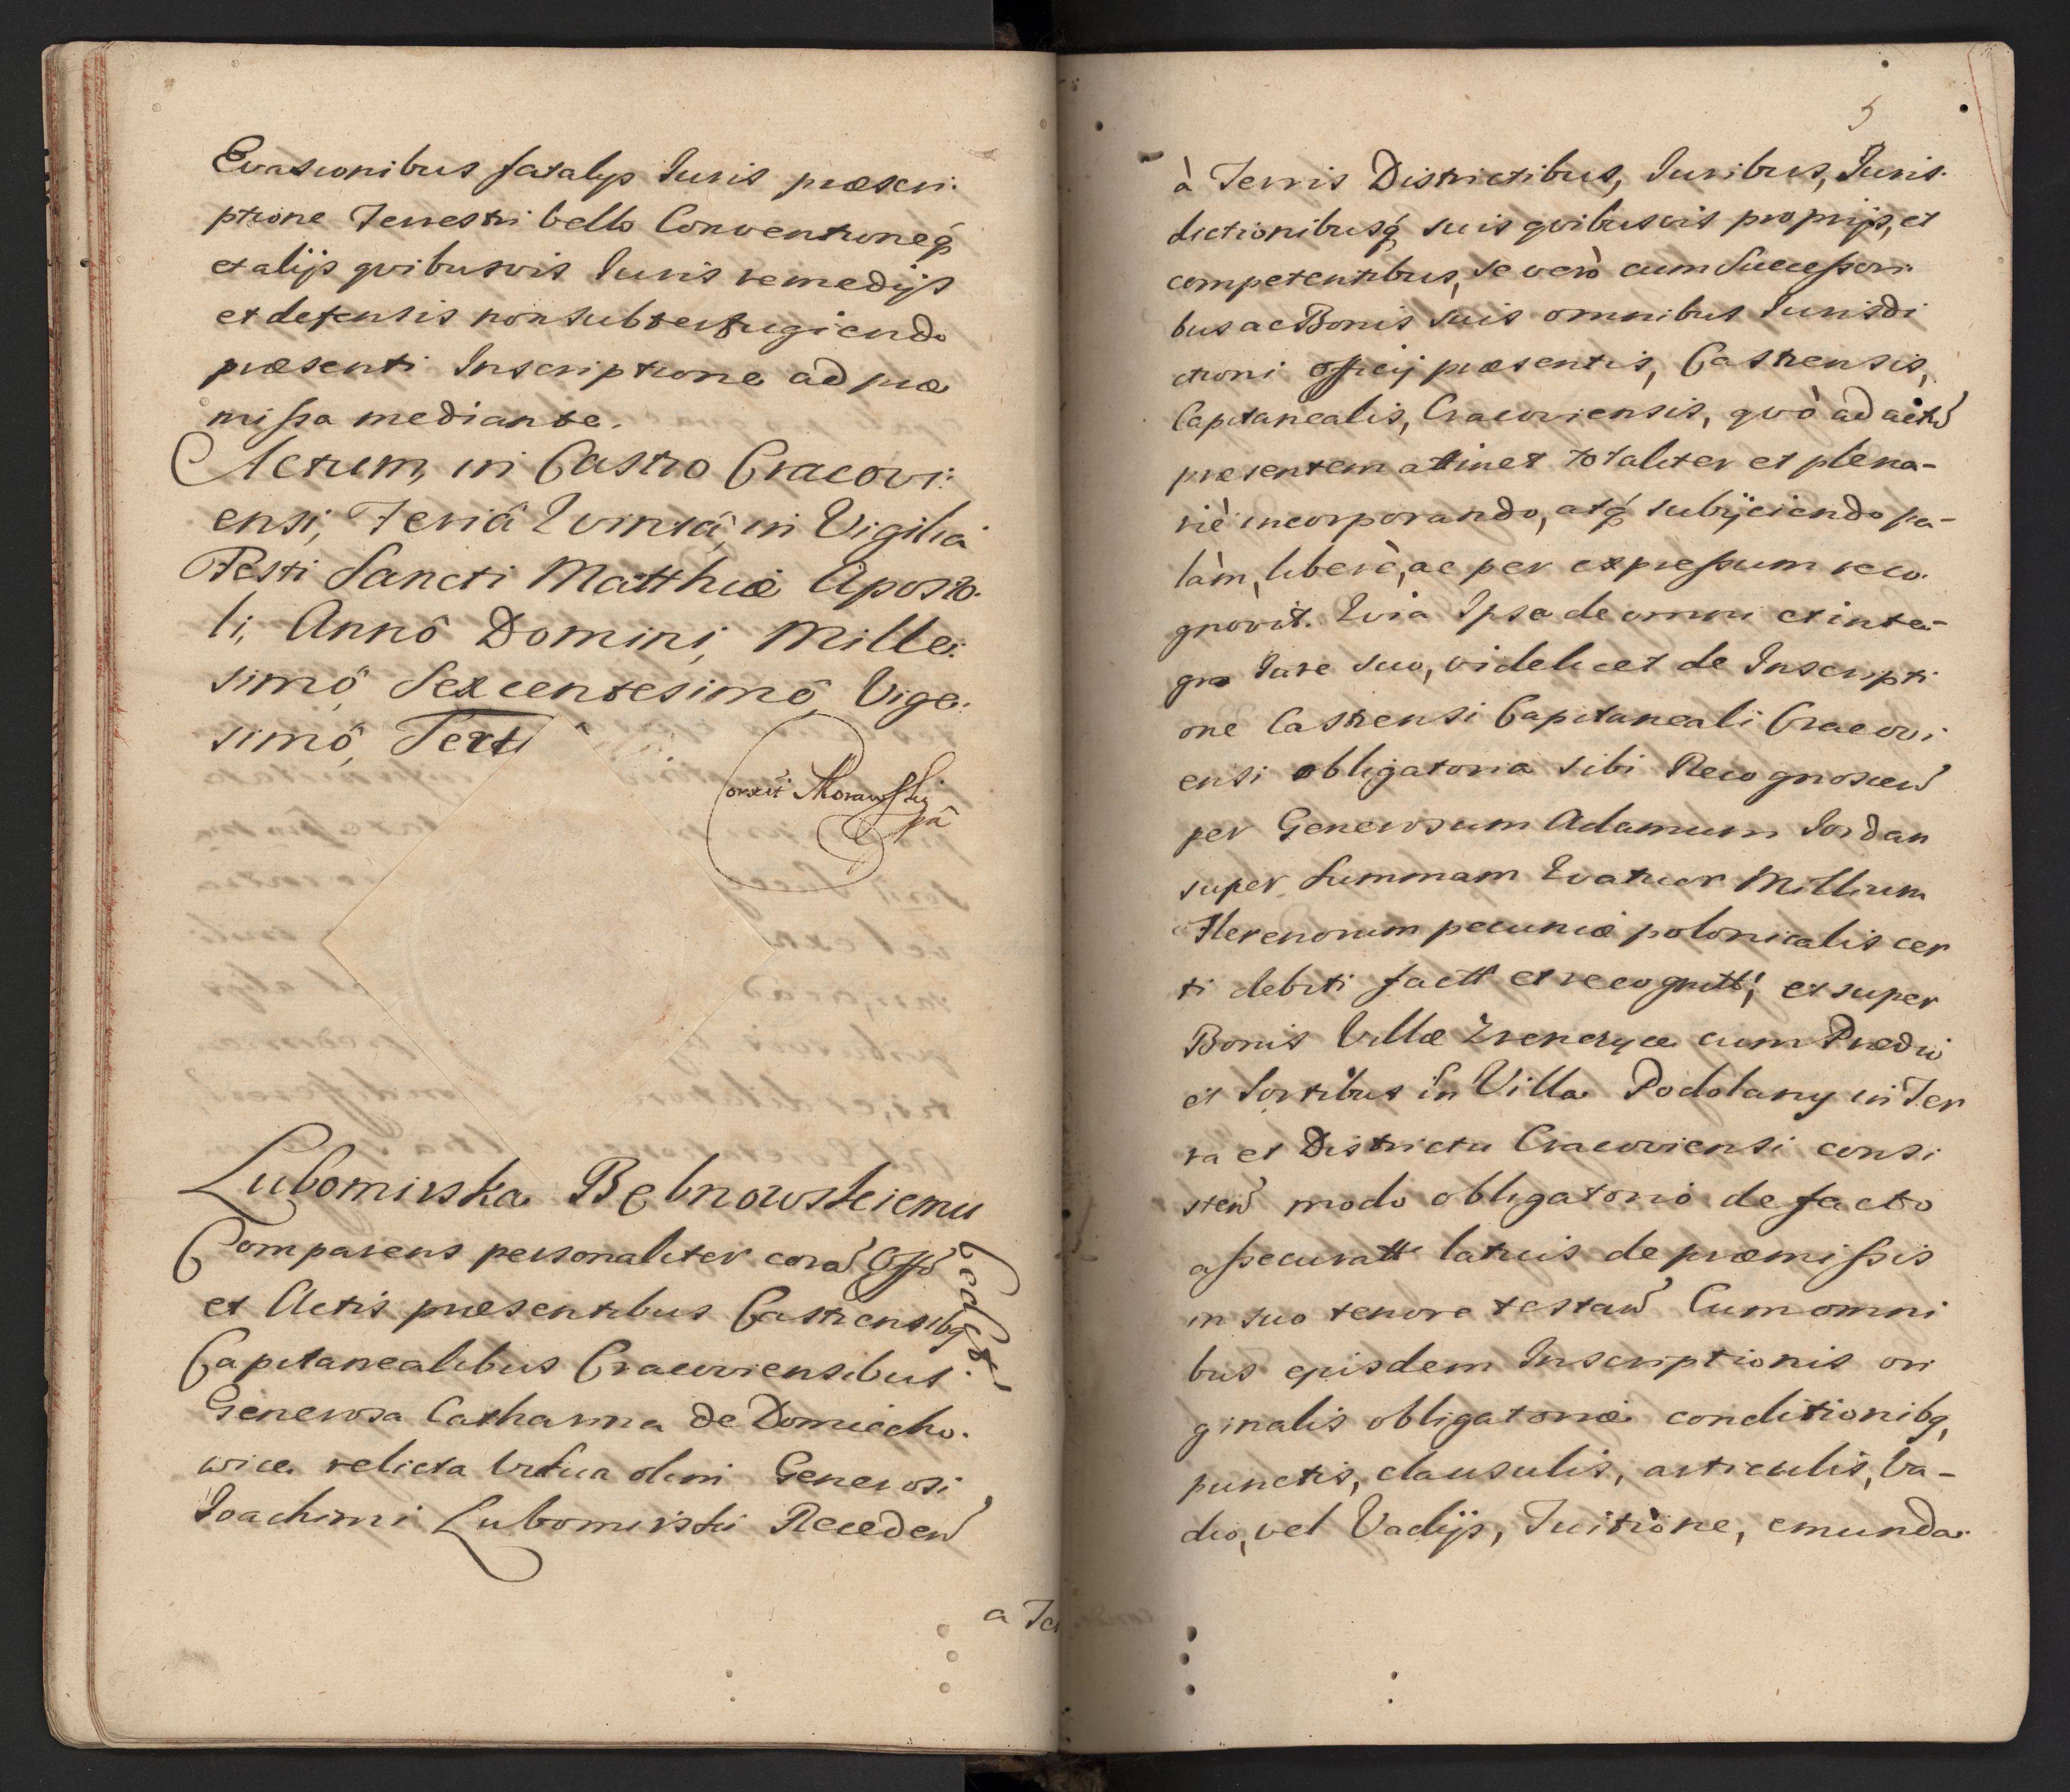 Evasionibus fatalijs Iuris præscri:
ptione Terrestri bello Conventioneq́;
et alijs qvibusvis Iuris remedijs
et defensis non subterfugiendo
præsenti Inscriptione ad præ
missa mediante.
Actum, in Castro Cracovi:
ensi, Feriâ Qvintâ, in Vigiliâ
Festi Sancti Matthiæ Aposto.
li, Annô Domini, Mille:
simô, Sexcentesimô, Vige:
simô, Terti
Correxit Morawski
pâ
Lubomirska Bębnowskiemu
Comparens personaliter corã Offõ
et Actis præsentibus Castrensibq
Capitanealibus Cracoviensibus.
Cedit
Generosa Catharina de Domiecho.
wice relicta Vidua olim Generosi
Joachimi Lubomirski Receden̄
a Ter
5
à Terris Districtibus, Iuribus, Iuris.
dictionibusq́ suis qvibusvis proprijs, et
competentibus, se verò cum Successori
bus ac Bonis suis omnibus Iurisdi
ctioni officij præsentis, Castrensis,
Capitanealis, Cracoviensis, qvò ad actũ
præsentem attinet totaliter et plena-
riè incorporando, atq́ subÿciendo pa-
làm, liberè, ac per expressum reco.
gnovit. Qvia Ipsa de omni et inte-
gro Iure suo, videlicet de Inscripti
one Castrensi Capitaneali Cracovi
ensi obligatoria sibi Recognoscen̄
per Generosum Adamum Iordan
super Summam Qvatuor Millium
Florenorum pecuniæ polonicalis cer
ti debiti factt et recognitt, et super
Bonis Villæ Zrenczyce cum Prædio
et Sortibus in Villa Podolany in Ter
ra et Districtu Cracoviensi consi
sten̄ modo obligatorio de facto
assecuratt latius de præmissis
in suo tenore testan̄ Cum omni
bus ejusdem Inscriptionis ori
ginalis obligatoriæ conditionibq,
punctis, clausulis, articulis, Va-
dio, vel Vadijs, Tuitione, emunda.